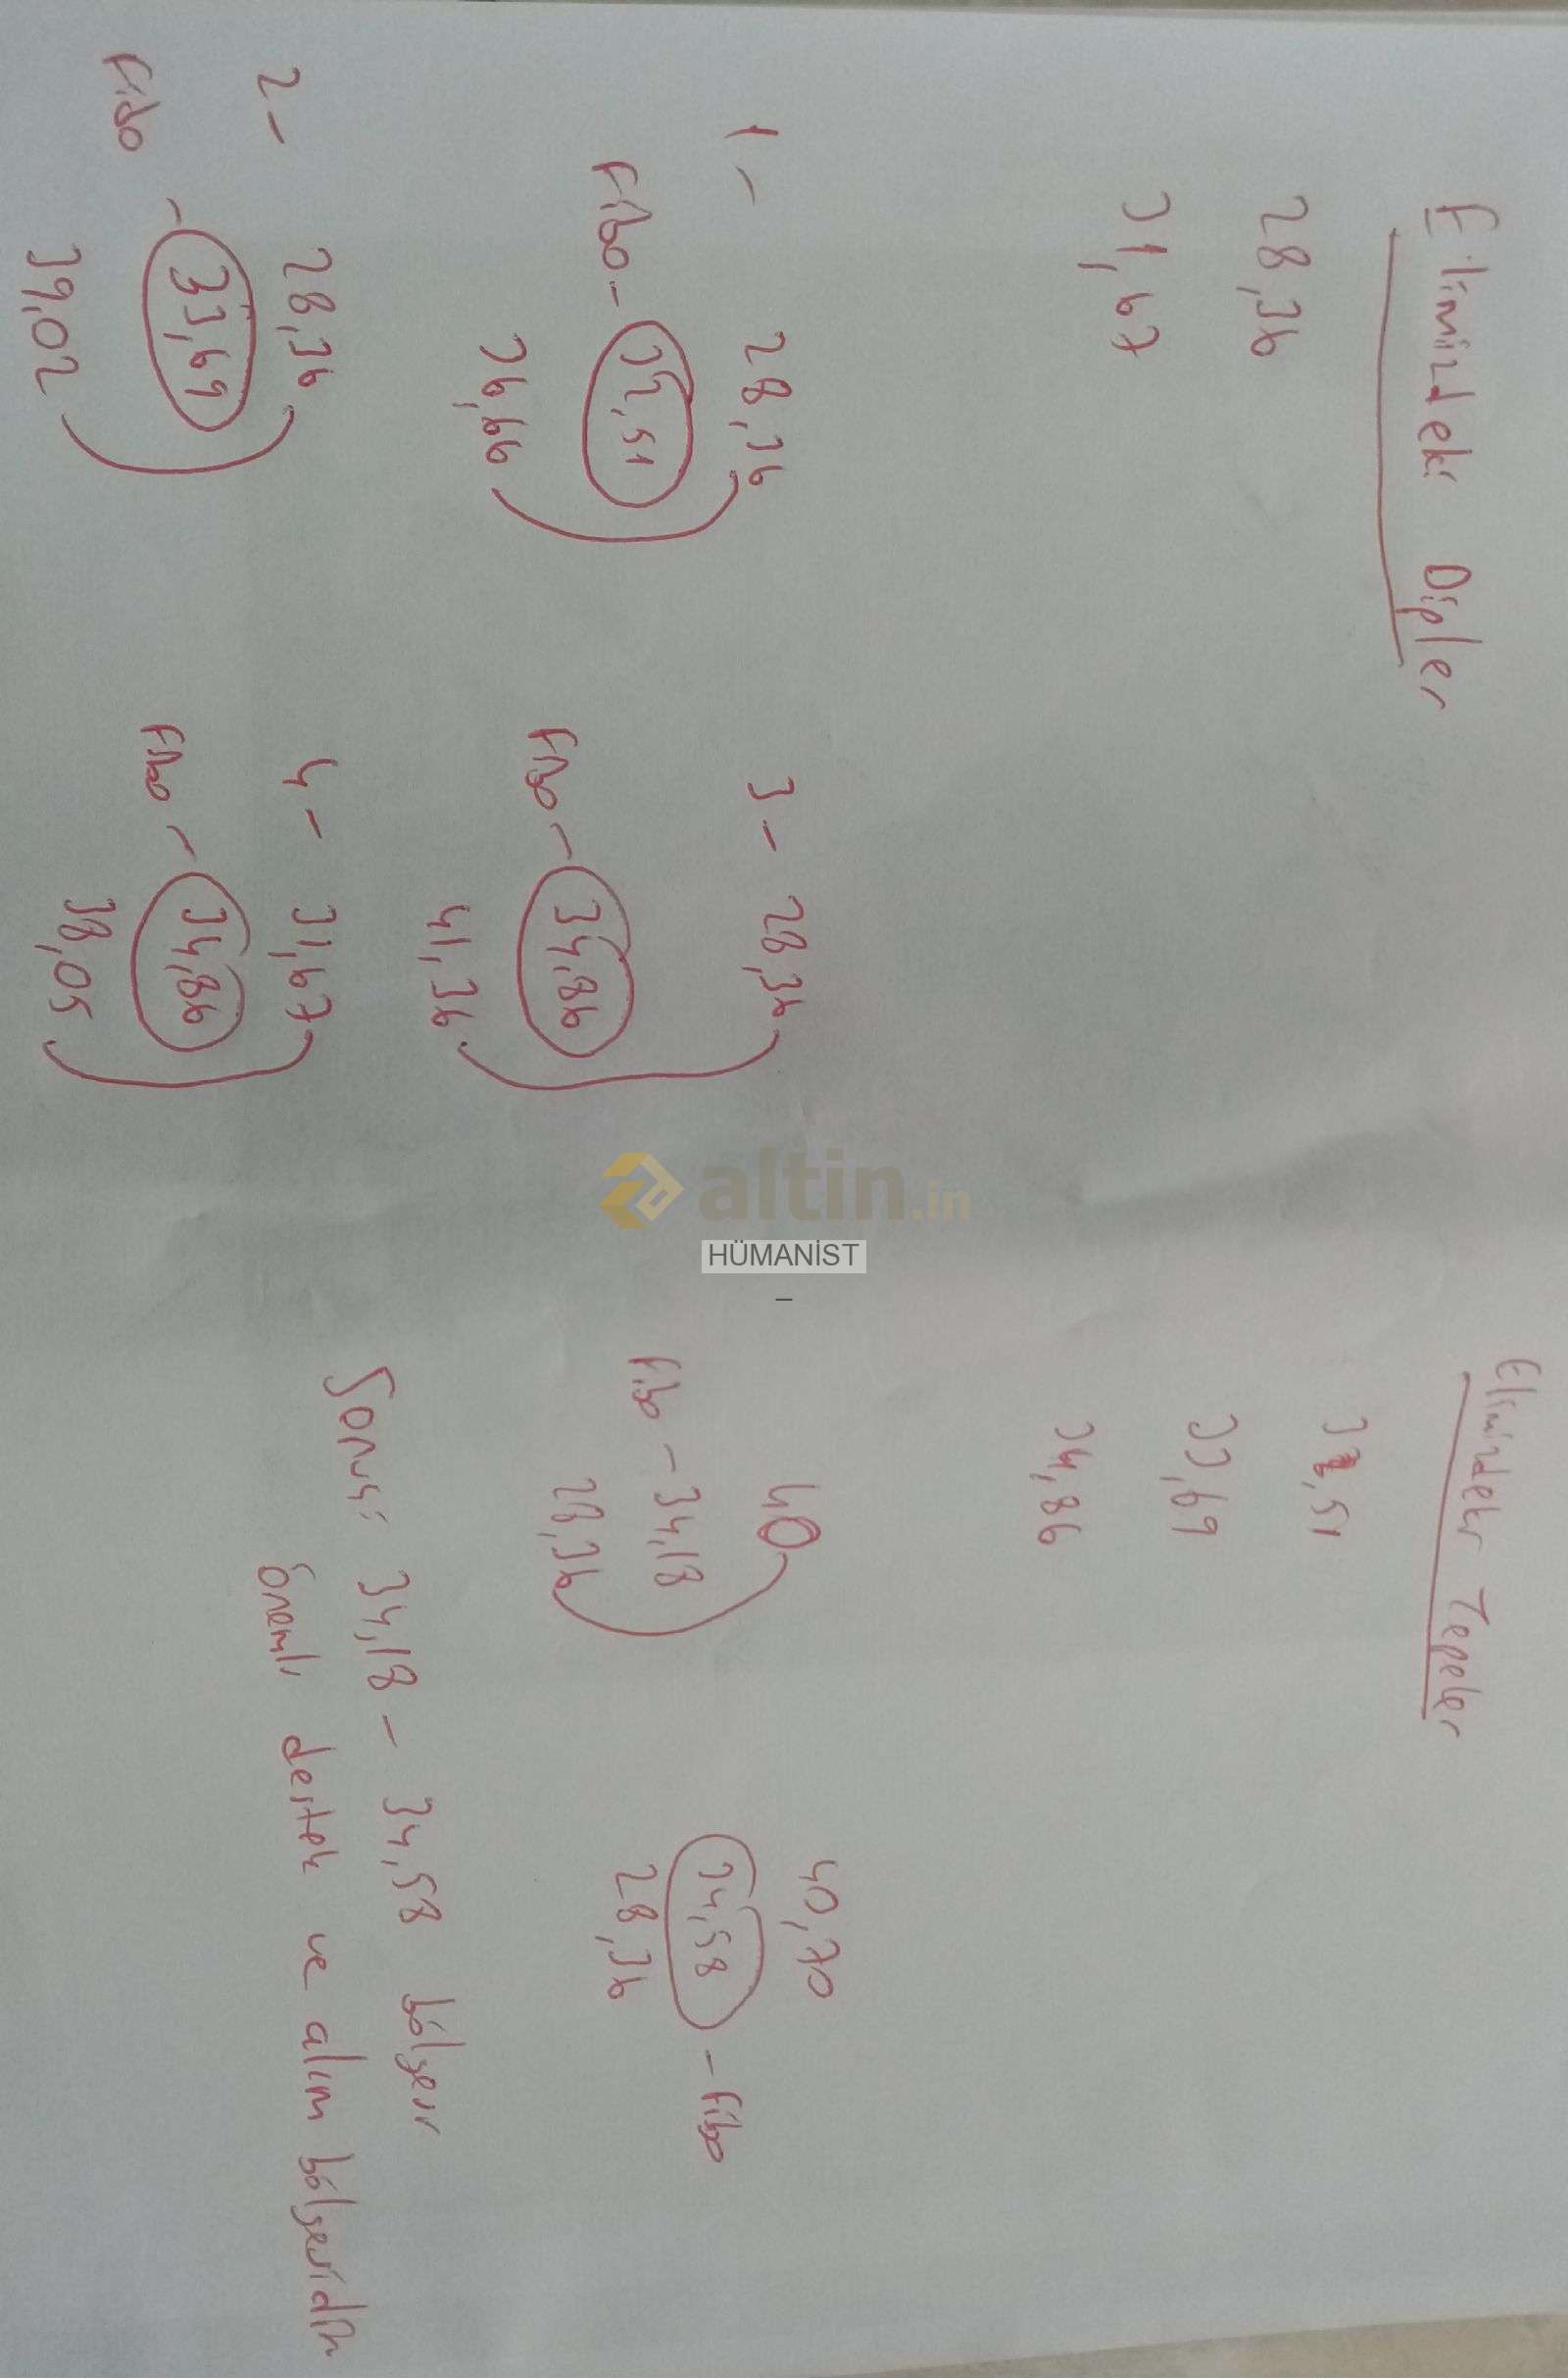 Elimizdeki Dipler
28,36
31,67
1 - 28,36
Fibo - 32,51
36,66
2 - 28,36
Fibo - 33,69
39,02
3 - 28,36
Fibo - 34,86
41,36
4 - 31,67
Fibo - 34,86
38,05
Elimizdeki Tepeler
32,51
33,69
34,86
40
Fibo - 34,18
28,36
40,70
34,58 - fibo
28,36
Sonuç: 34,18 - 34,58 bölgesi
önemli destek ve alım bölgesidir
altin.in
HÜMANİST